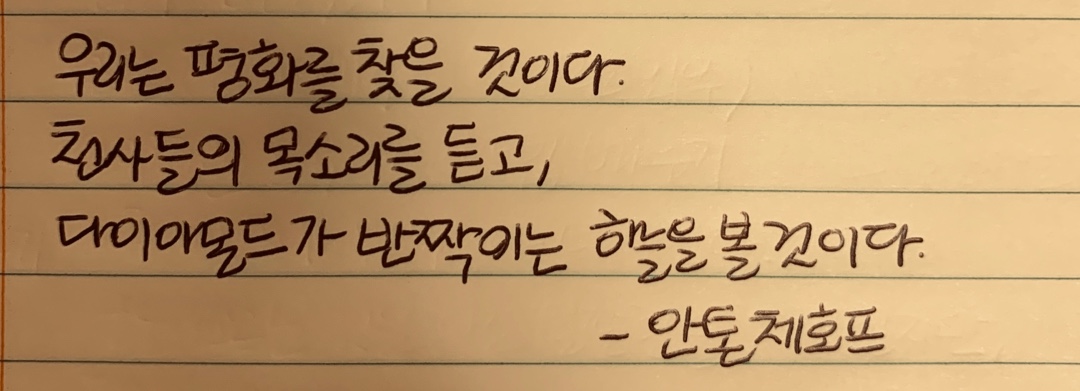 우리는 평화를 찾을 것이다.
천사들의 목소리를 듣고,
다이아몬드가 반짝이는 하늘을 볼 것이다.
- 안톤 체호프